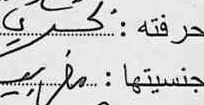 حرفته :
جنسيتها : مغربية